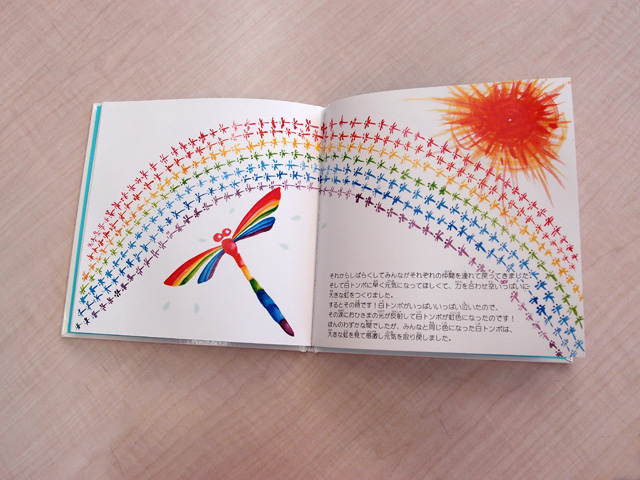 それからしばらくしてみんながそれぞれの仲間を連れて戻ってきました。
そして白トンボに早く元気になってほしくて、力を合わせ空いっぱいに
大きな虹をつくりました。
するとその時！白トンボがいっぱいいっぱい泣いたので、
その涙におひさまの光が反射して白トンボが虹色になったのです！
ほんのわずかな間でしたが、みんなと同じ色になった白トンボは、
大きな虹を見て感激し元気を取り戻しました。